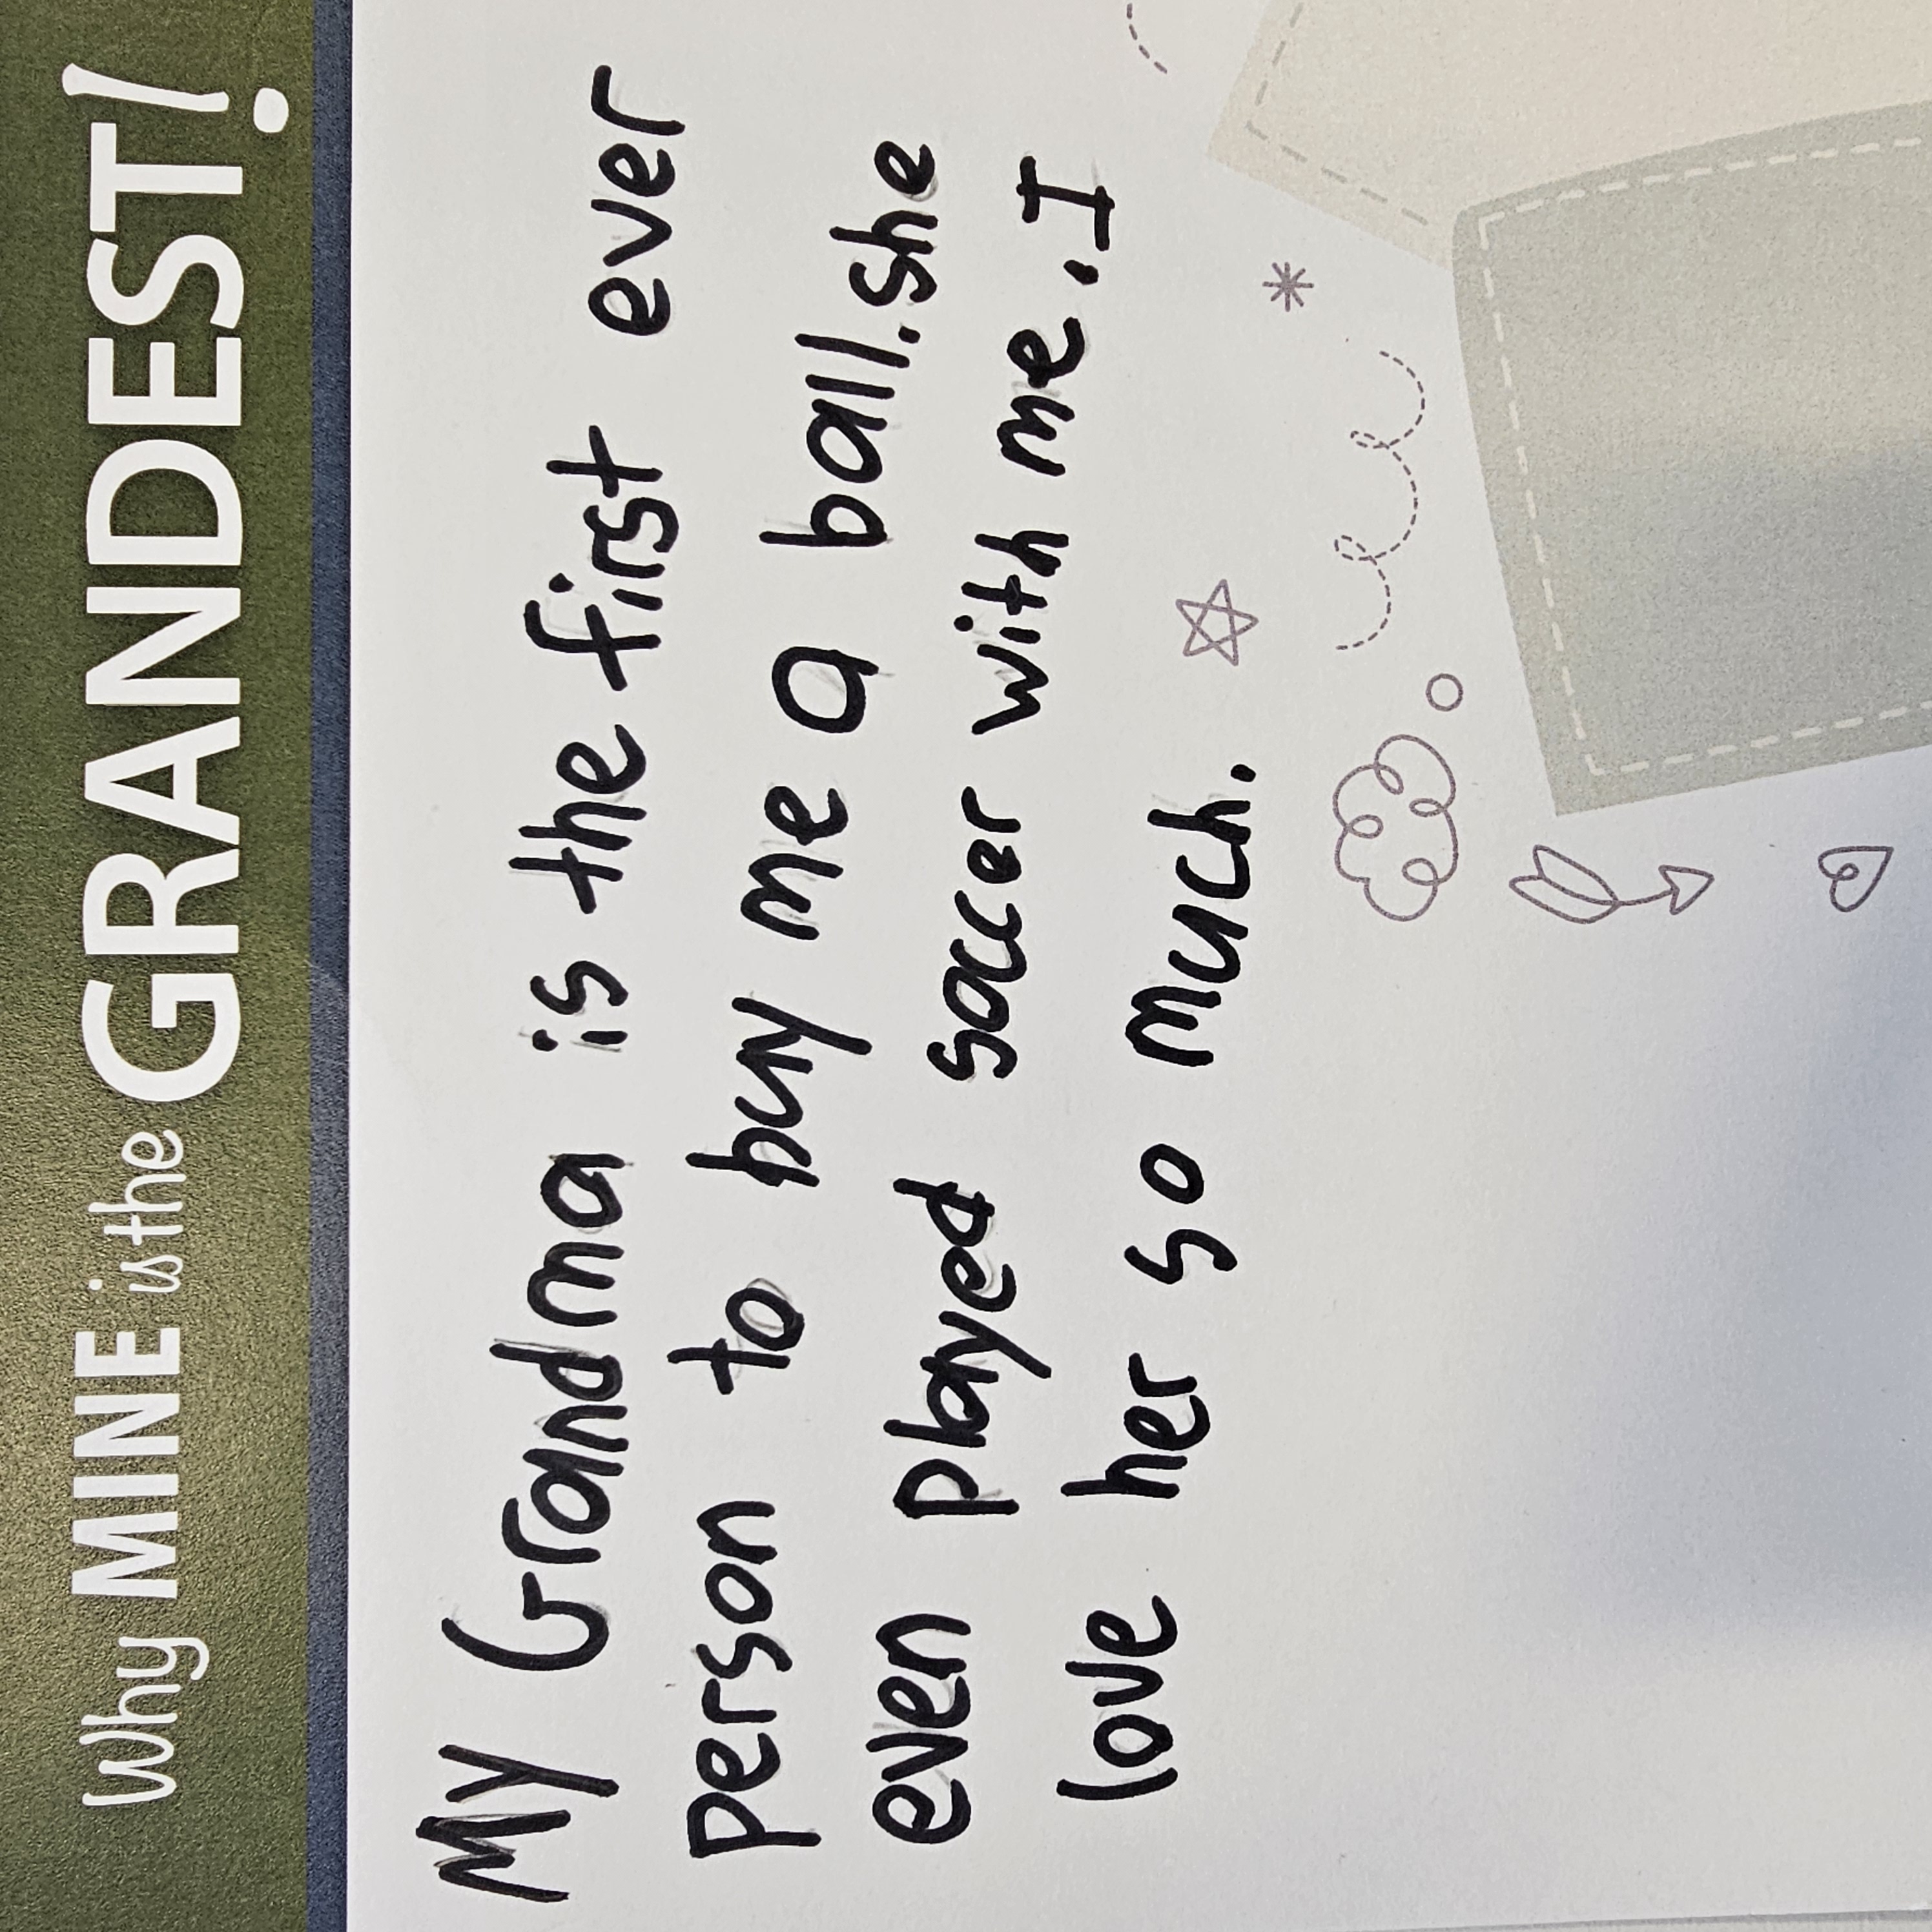 Why MINE is the GRANDEST!
My Grandma is the first ever
person to buy me a ball. she
even played soccer with me. I
love her so much.